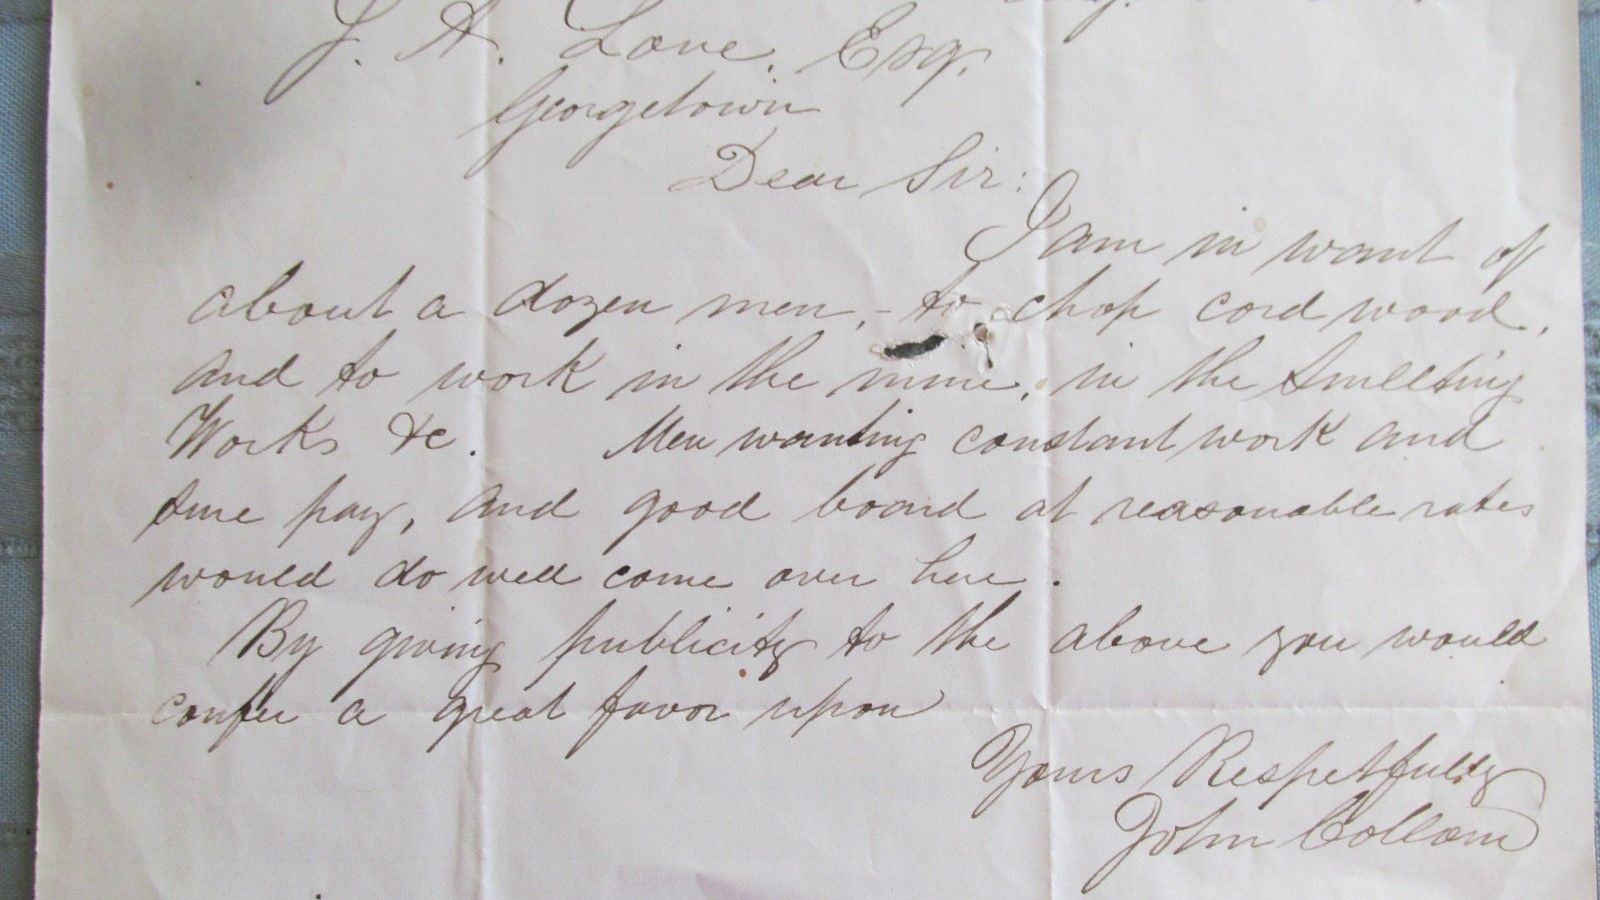 J. A. Love, Esq.
Georgetown
Dear Sir:
I am in want of
about a dozen men, - to chop cord wood,
and to work in the mine, in the Smelting
Works &c. Men wanting constant work and
sure pay, and good board at reasonable rates
would do well come over here.
By giving publicity to the above you would
confer a great favor upon
Yours Respetfully
John Collom